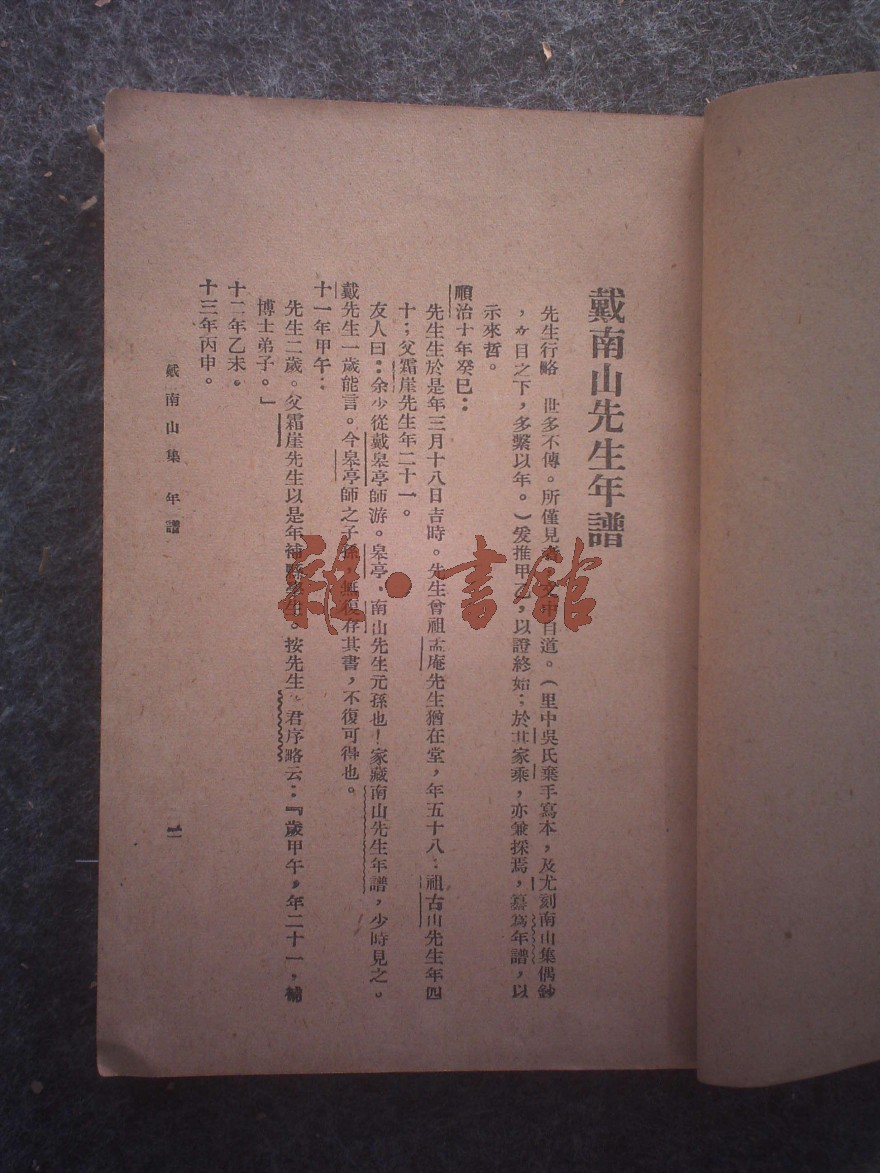 戴南山先生年譜
先生行略　世多不傳。所僅見者，文中自道。（里中吳氏棄手寫本，及尤刻南山集偶鈔
，々目之下，多繫以年。）爰推甲乙，以證終始；於其家乘，亦兼採焉，纂爲年譜，以
示來哲。
順治十年癸巳：
先生生於是年三月十八日吉時。先生曾祖孟庵先生猶在堂，年五十八；祖古山先生年四
十；父霜崖先生年二十一。
友人曰：余少從戴皋亭師游。皋亭，南山先生元孫也！家藏南山先生年譜，少時見之。
戴先生一歲能言。今皋亭師之子孫，無復存其書，不復可得也。
十一年甲午：
先生二歲。父霜崖先生以是年補縣學生。按先生 君序略云：『歲甲午，年二十一，補
博士弟子。」
十二年乙未。
十三年丙申。
戴南山集　年譜
雜·書館